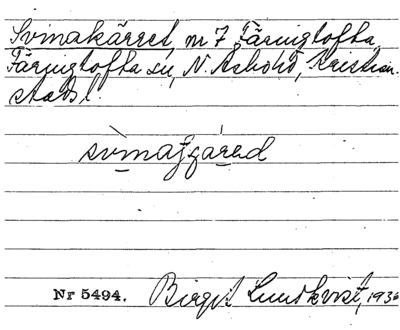 Svinakärret, nr 7 Färingtofta,
Färingtofta sn, N. Åsbohd, Kristian-
stads l.
svinaʃɟäred
Nr 5494. Birgit Lundkvist, 1936